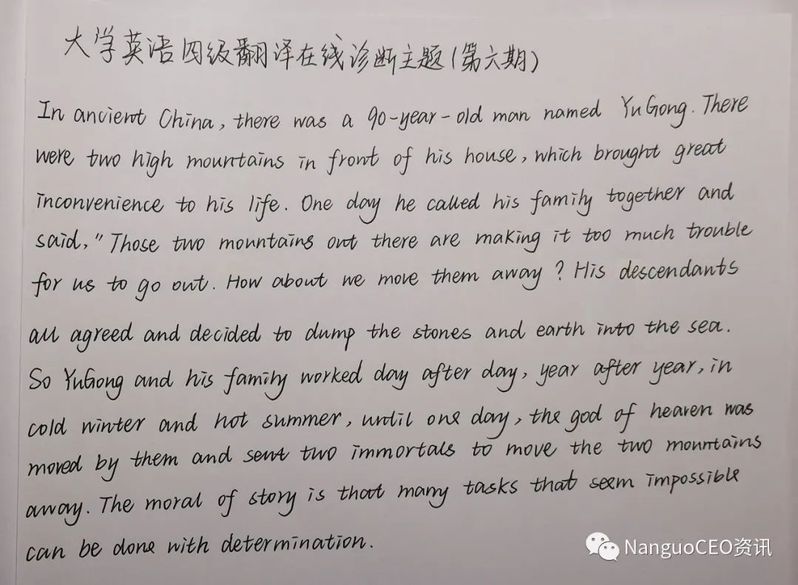 大学英语四级翻译在线诊断主题(第六期)
In ancient China, there was a 90-year-old man named YuGong. There
were two high mountains in front of his house, which brought great
inconvenience to his life. One day he called his family together and
said, "Those two mountains out there are making it too much trouble
for us to go out. How about we move them away? His descendants
all agreed and decided to dump the stones and earth into the sea.
So YuGong and his family worked day after day, year after year, in
cold winter and hot summer, until one day, the god of heaven was
moved by them and sent two immortals to move the two mountains
away. The moral of story is that many tasks that seem impossible
can be done with determination.
NanguoCEO资讯